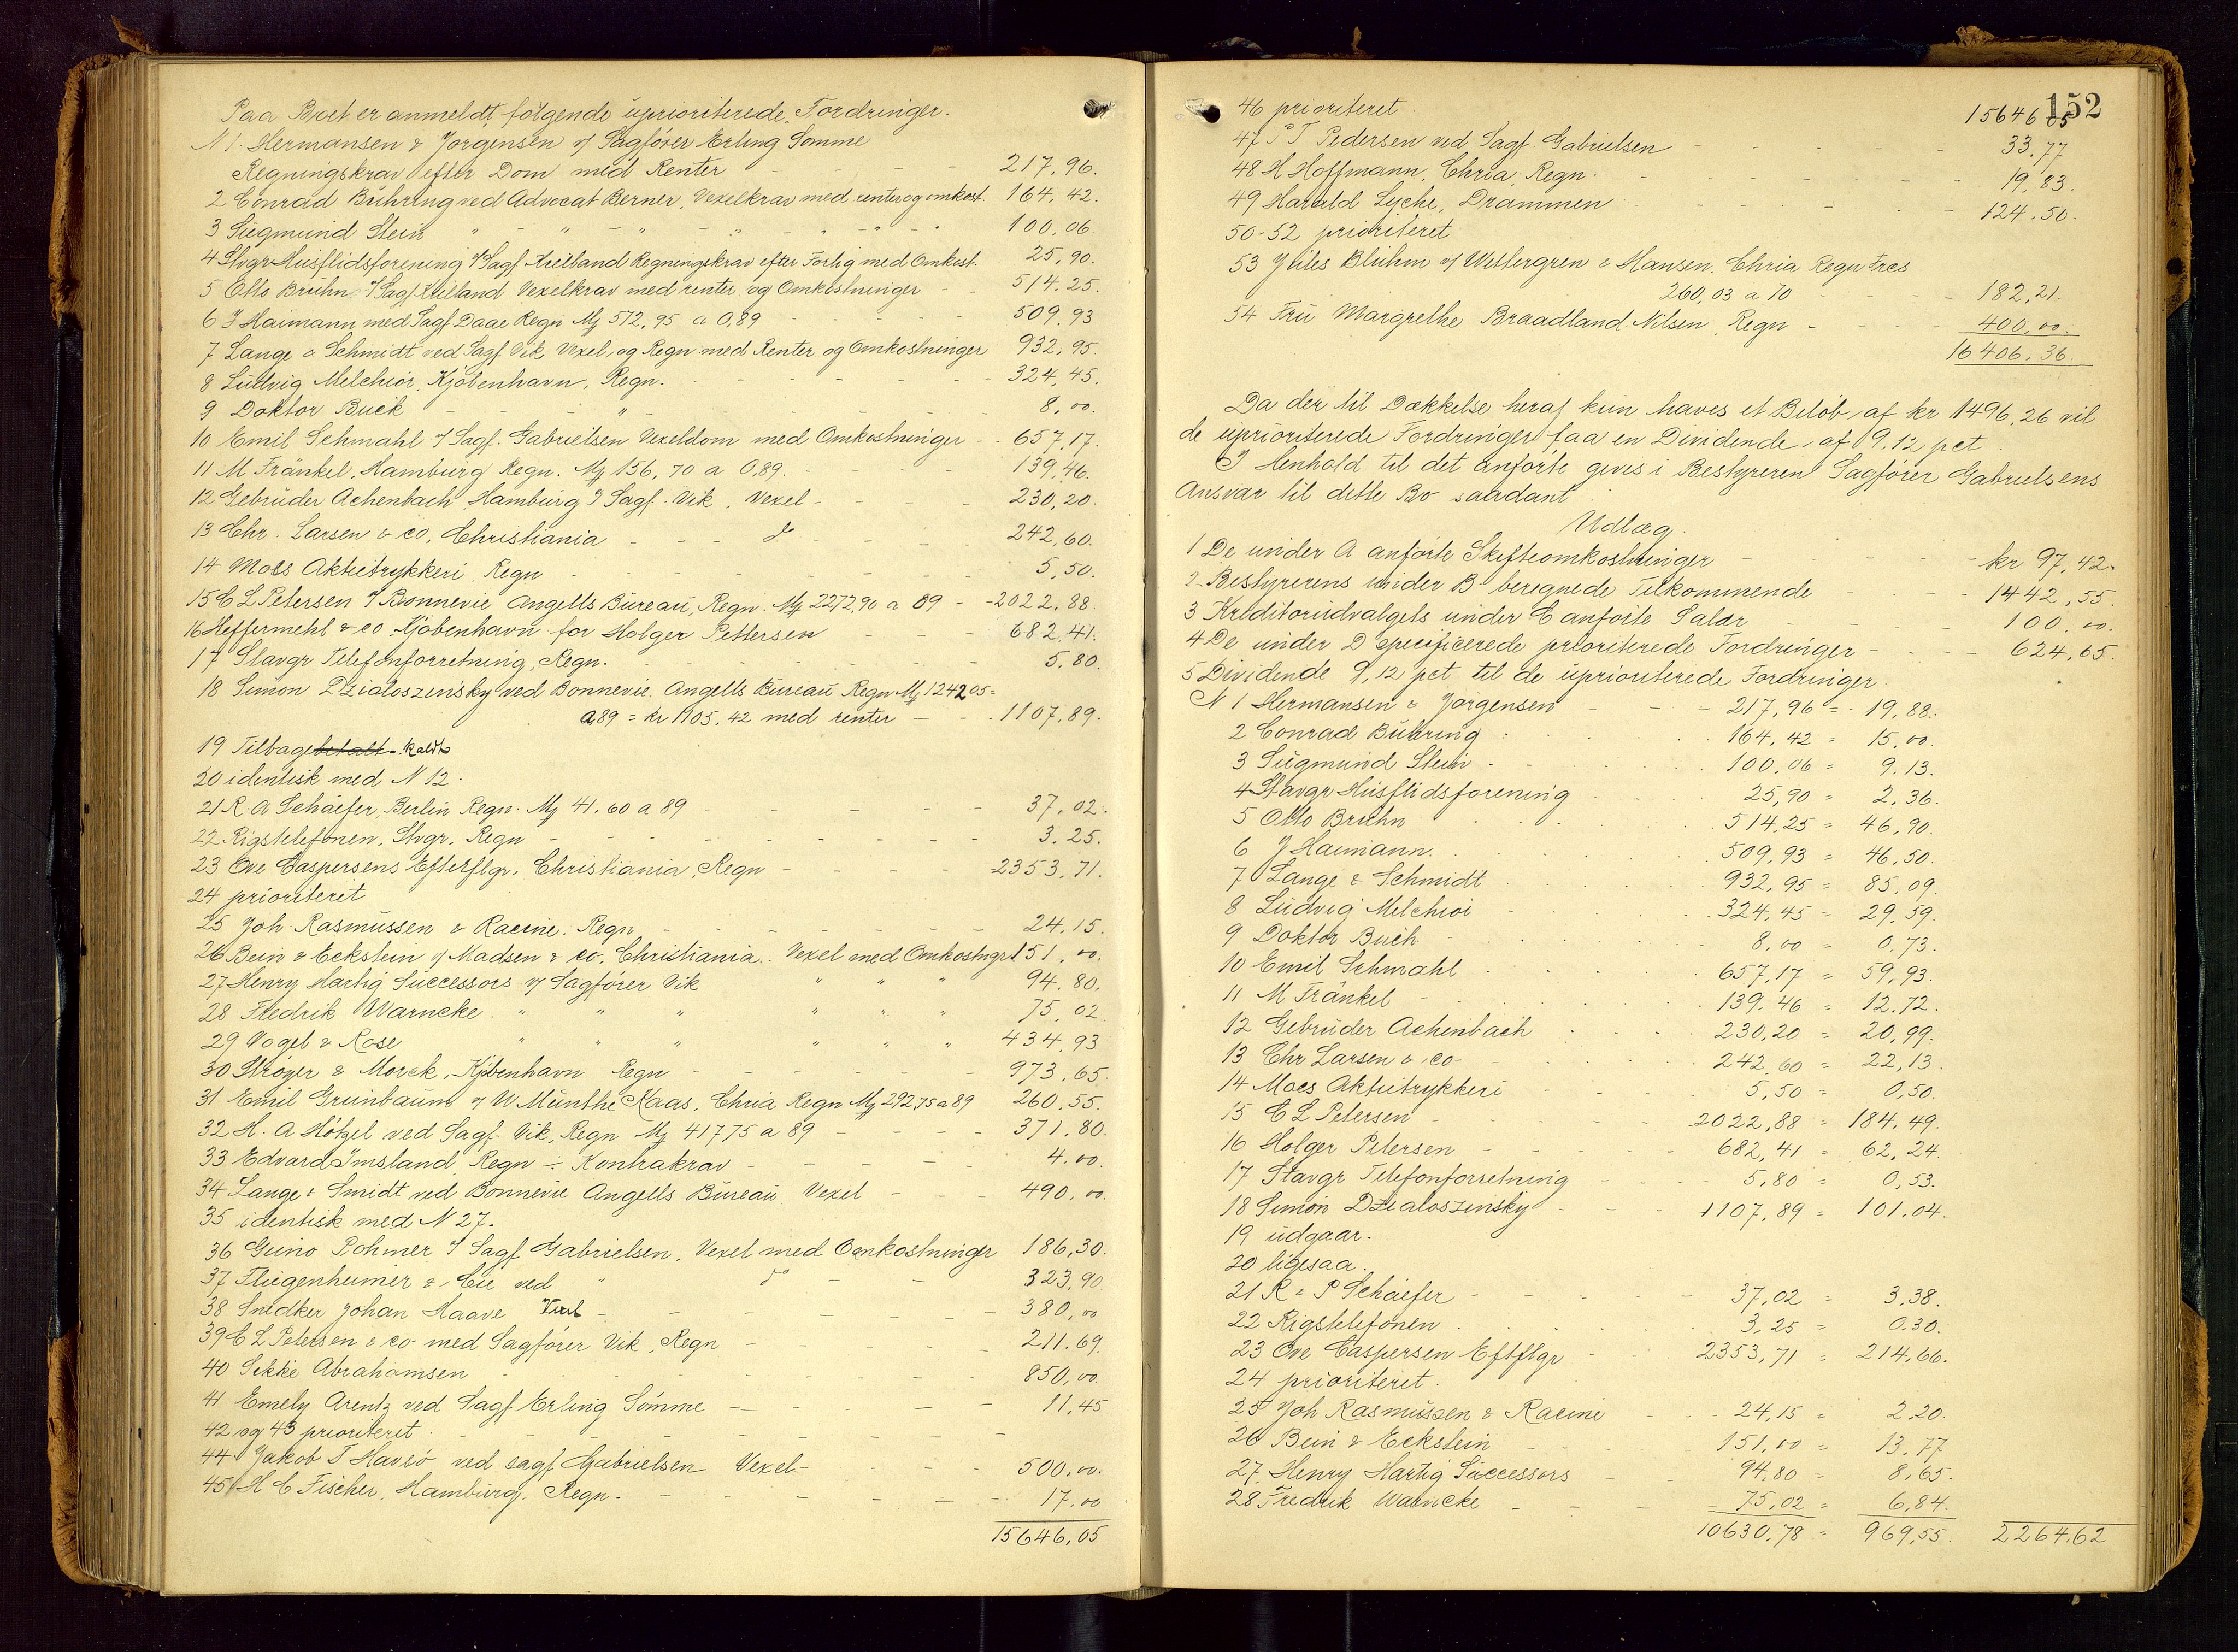 Paa Boet er anmeldt følgende uprioriterede Fordringer.
N 1. Hermansen & Jørgensen v/ Sagfører Erling Sømme
Regningskrav efter Dom med Renter - - - 217,96.
2 Conrad Bühring ved Advocat Berner, Vexelkrav med renter og omkost. 164,42.
3 Siegmund Stein " - " - " - " - " - " - 100,06.
4 Stvgr Husflidsforening v/ Sagf. Kielland Regningskrav efter Forlig med Omkost. 25,90.
5 Otto Bruhn v/ Sagf Kielland Vexelkrav med renter og Omkostninger - - 514.25.
6 J Haimann med Sagf Daae Regn Mg 572,95 a 0,89 - - - 509,93
7 Lange & Schmidt ved Sagf Vik, Vexel, og Regn med Renter og Omkostninger 932,95.
8 Ludvig Melchior, Kjøbenhavn, Regn. - - - 324,45.
9 Doktor Buck - - - " - - - 8,00.
10 Emil Schmahl v/ Sagf. Gabrielsen Vexeldom med Omkostninger - - 657,17.
11 M Fränkel, Hamburg Regn. Mg 156,70 a 0,89. - - - 139,46.
12 Gebrüder Achenbach Hamburg v/ Sagf. Vik, Vexel - - - 230,20.
13 Chr. Larsen & co, Christiania - - - do - - - 242,60.
14 Moss Aktietrykkeri Regn - - - 5,50.
15 C L Petersen v/ Bonnevie Angells Bureau, Regn. Mg 2272,90 a 89 - -2022.88.
16 Heffermehl & co Kjøbenhavn for Holger Pettersen - - - 682,41.
17 Stavgr Telefonforretning, Regn. - - - 5,80.
18 Simon Dzialoszinsky ved Bonnevie Angells Bureau Regn Mg 1242 05 =
a,89 = kr 1105,42 med renter - - - 1107,89.
19 Tilbagebetalt - kaldt
20 identisk med N 12.
21 R. A Schäefer, Berlin Regn. Mg 41.60 a 89 - - - 37,02.
22 Rigstelefonen, Stvgr. Regn - - - 3.25.
23 Ove Caspersens Efterflgr, Christiania, Regn - - - 2353,71.
24 prioriteret
25 Joh. Rasmussen & Racine. Regn - - - 24,15.
26 Bein & Eckstein v/ Madsen & co, Christiania. Vexel med Omkostngr 151,00.
27 Henry Hartig Successors v/ Sagfører Vik " " " 94.80.
28 Fredrik Warncke " " " " " " 75,02.
29 Vogel & Rose " " " " " " 434,93
30 Strøyer & Morck, Kjøbenhavn Regn - - - 973,65.
31 Emil Grünbaum v/ W Münthe Kaas, Chria Regn Mg 292,75 a 89 260,55.
32 H. A Hötzel ved Sagf. Vik, Regn Mg 417 75 a 89 - - - 371.80.
33 Edvard Imsland, Regn ÷ Kontrakrav - - - 4.00.
34 Lange & Smidt ved Bonnevie Angells Bureau Vexel - - - 490,00.
35 identisk med N 27.
36 Guino Rohmer v/ Sagf Gabrielsen, Vexel med Omkostninger 186,30.
37 Fliegenheimer & Cie ved " do - - 323,90
38 Snedker Johan Haave Vexel - - - 380,00
39 C L Petersen & co med Sagfører Vik, Regn - - - 211.69.
40 Sikke Abrahamsen - - - 850,00.
41 Emely Arentz ved Sagf Erling Sømme - - - 11,45
42 og 43 prioriteret. - - -
44 Jakob T Havsø ved sagf Gabrielsen Vexel - - - 500,00.
45 H C Fischer, Hamburg, Regn. - - - 17,00
15646,05
152
46 prioriteret. 15646 05
47 P T Pedersen ved Sagf. Gabrielsen - - - 33.77
48 H Hoffmann, Chria, Regn. - - - 19,83.
49 Harald Lyche, Drammen - - - 124.50.
50-52 prioriteret
53 Jules Blühm v/ Wettergren & Hansen, Chria Regn Frcs
260,03 a 70 - - - 182,21.
54 Fru Margrethe Braadland Nilsen, Regn - - - 400,00.
16406,36.
Da der til Dækkelse heraf kun haves et Beløb af kr 1496,26 vil
de uprioriterede Fordringer faa en Dividende af 9,12 pct.
I Henhold til det anførte gives i Bestyreren Sagfører Gabrielsens
Ansvar til dette Bo saadant
Udlæg.
1 De under A anførte Skifteomkostninger - - - kr 97,42.
2 Bestyrerens under B beregnede Tilkommende - - - 1442,55.
3 Kreditorudvalgets under C anførte Salær - - - 100,00.
4 De under D specificerede prioriterede Fordringer - - - 624,65.
5 Dividende 9,12 pct til de uprioriterede Fordringer
N 1 Hermansen & Jørgensen - - - 217,96 = 19,88.
2 Conrad Bühring - - - 164,42 = 15,00.
3 Siegmund Stein - - - 100,06 = 9.13.
4 Stavgr Husflidsforening - - - 25,90 = 2,36.
5 Otto Bruhn - - - 514,25 = 46,90.
6 J Haimann. - - - 509,93 = 46,50.
7 Lange & Schmidt - - - 932,95 = 85,09.
8 Ludvig Melchior - - - 324,45 = 29.59.
9 Doktor Buch - - - 8,00 = 0.73.
10 Emil Schmahl - - - 657,17 = 59,93.
11 M Fränkel - - - 139.46 = 12.72.
12 Gebrüder Achenbach - - - 230,20 = 20,99.
13 Chr Larsen & co - - - 242,60 = 22,13.
14 Moss Aktietrykkeri - - - 5,50 = 0,50.
15 C L Petersen - - - 2022,88 = 184,49.
16 Holger Petersen - - - 682,41 = 62,24.
17 Stavgr Telefonforretning - - - 5.80 = 0,53.
18 Simon Dzialoszinsky - - - 1107,89 = 101,04.
19 udgaar.
20 ligesaa.
21 R & P Schäefer - - - 37,02 = 3,38.
22 Rigstelefonen - - - 3,25 = 0.30.
23 Ove Caspersen Eftflgr - - - 2353,71 = 214,66.
24 prioriteret.
25 Joh Rasmussen & Racine - - - 24,15 = 2.20.
26 Bein & Eckstein - - - 151,00 = 13.77
27 Henry Hartig Successors - - - 94,80 = 8,65.
28 Fredrik Warncke - - - 75,02 = 6,84.
10630,78 = 969,55. 2264,62